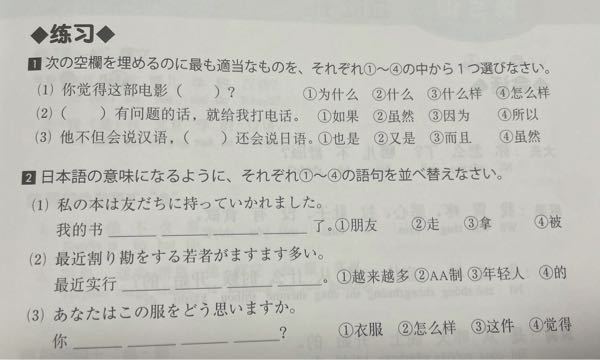 ◆练习◆
1 次の空欄を埋めるのに最も適当なものを、それぞれ①～④の中から１つ選びなさい。
(1) 你觉得这部电影（　　）？　①为什么　②什么　③什么样　④怎么样
(2)（　　）有问题的话，就给我打电话。　①如果　②虽然　③因为　④所以
(3) 他不但会说汉语，（　　）还会说日语。①也是　②又是　③而且　④虽然
2 日本語の意味になるように、それぞれ①～④の語句を並べ替えなさい。
(1) 私の本は友だちに持っていかれました。
我的书 ____ ____ ____ ____ 了。①朋友　②走　③拿　④被
(2) 最近割り勘をする若者がますます多い。
最近实行 ____ ____ ____ ____。①越来越多 ②AA制 ③年轻人 ④的
(3) あなたはこの服をどう思いますか。
你 ____ ____ ____ ____ ？　①衣服　②怎么样　③这件　④觉得